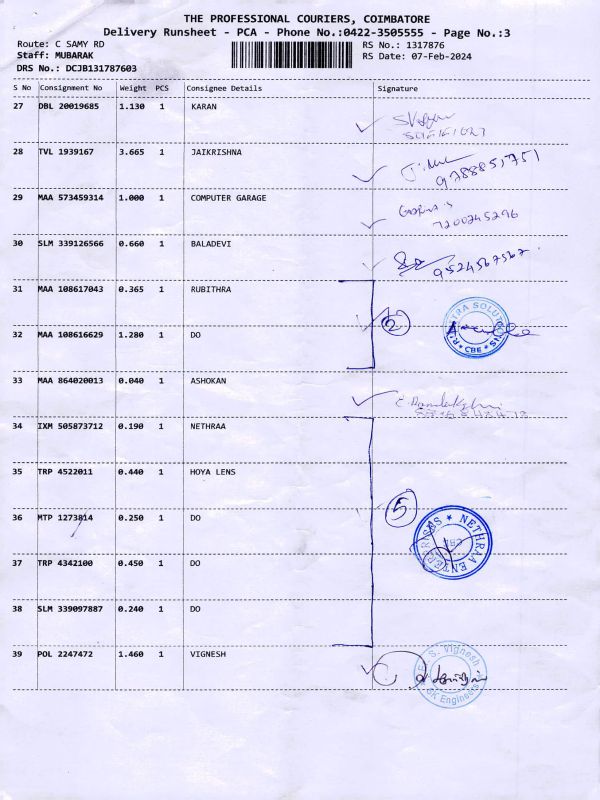 THE PROFESSIONAL COURIERS, COIMBATORE
Delivery Runsheet - PCA - Phone No.:0422-3505555 - Page No.:3
Route: C SAMY RD
Staff: MUBARAK
DRS No.: DCJB131787603
RS No.: 1317876
RS Date: 07-Feb-2024
S No Consignment No Weight PCS Consignee Details Signature
27 DBL 20019685 1.130 1 KARAN
28 TVL 1939167 3.665 1 JAIKRISHNA
29 MAA 573459314 1.000 1 COMPUTER GARAGE
7200245296
30 SLM 339126566 0.660 1 BALADEVI
9524567567
31 MAA 108617043 0.365 1 RUBITHRA
2
32 MAA 108616629 1.280 1 DO
CBE
33 MAA 864020013 0.040 1 ASHOKAN
34 IXM 505873712 0.190 1 NETHRAA
35 TRP 4522011 0.440 1 HOYA LENS
5
36 MTP 1273814 0.250 1 DO
NETHRAA ENTERPRISES
37 TRP 4342100 0.450 1 DO
38 SLM 339097887 0.240 1 DO
39 POL 2247472 1.460 1 VIGNESH
S. Vignesh
SK Engineers